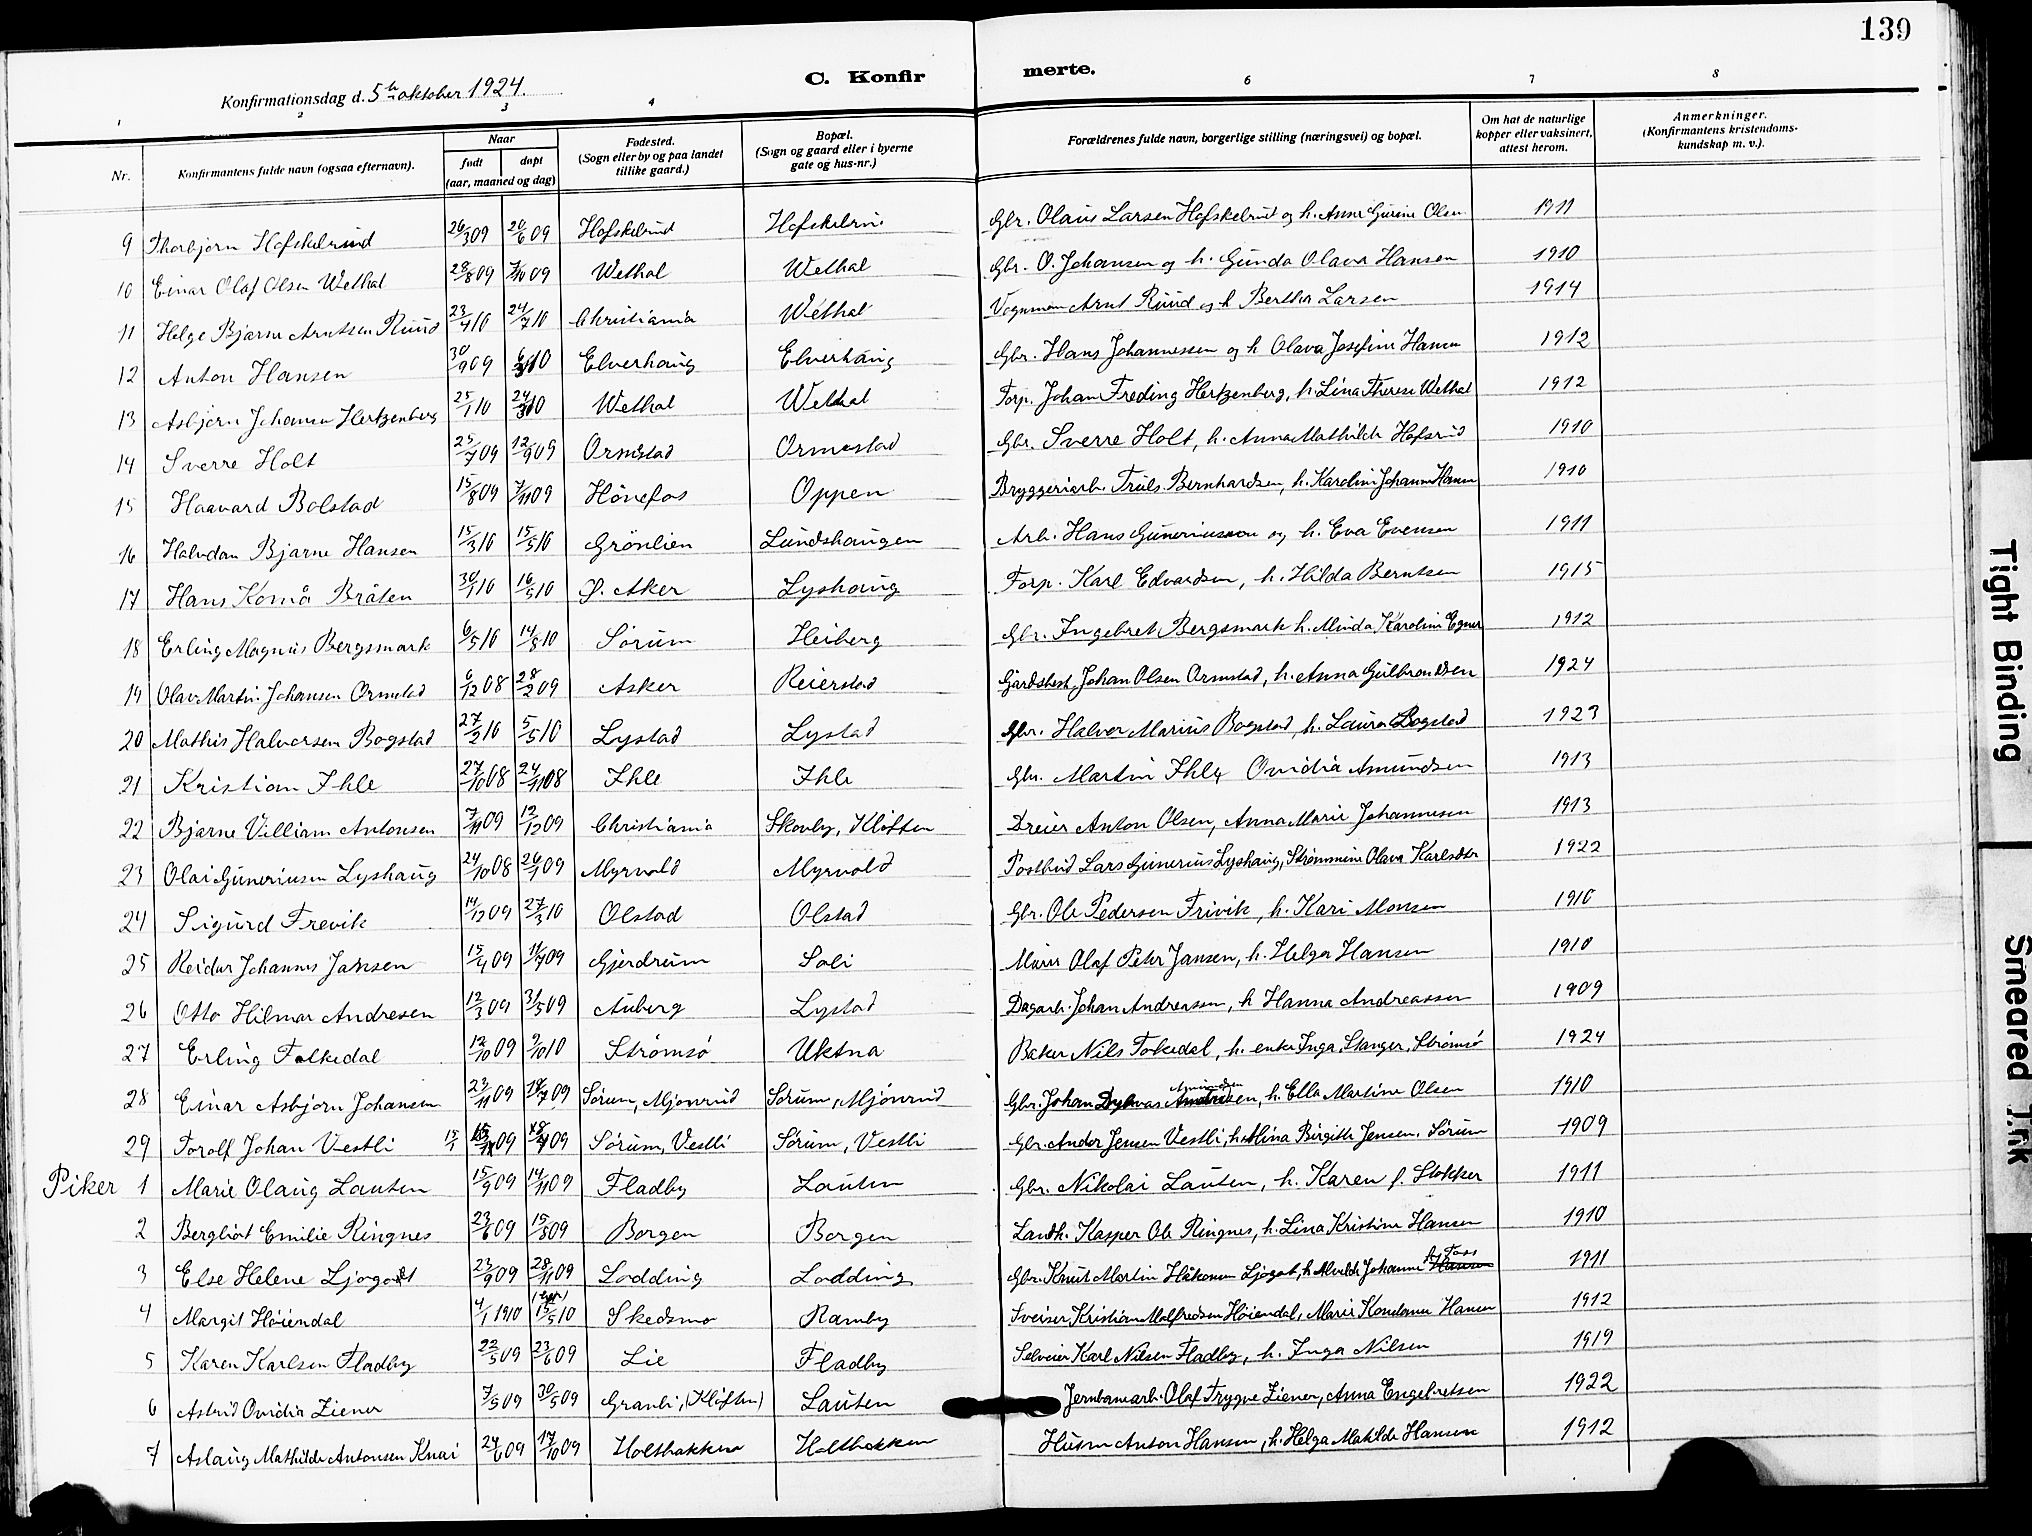 139
C. Konfir merte.
Konfirmationsdag d. 5te oktober 1924.
1 2 3 4 6 7 8
Nr. Konfirmantens fulde navn (ogsaa efternavn). Naar født døpt (aar, maaned og dag) Fødested. (Sogn eller by og paa landet tillike gaard.) Bopæl. (Sogn og gaard eller i byerne gate og hus-nr.) Forældrenes fulde navn, borgerlige stilling (næringsvei) og bopæl. Om hat de naturlige kopper eller vaksinert, attest herom. Anmerkninger. (Konfirmantens kristendoms-kundskap m. v.).
9 Thorbjørn Hofskelrud 26/3 09 20/6 09 Hofskelrud Hofskelrud Gbr. Olaus Larsen Hofskelrud og h. Anne Gurine Olsen 1911
10 Einar Olaf Olsen Wethal 28/8 09 7/10 09 Wethal Wethal Gbr. O. Johansen og h. Gunda Olava Hansen 1910
11 Helge Bjarne Arntsen Ruud 23/4 10 24/7 10 Christiania Wethal Vognman Arnt Ruud og h Bertha Larsen 1914
12 Anton Hansen 30/9 09 10 Elverhaug Elverhaug Gbr. Hans Johannessen og h Olava Josefine Hansen 1912
13 Asbjørn Johansen Hertzenberg 25/1 10 24/3 10 Wethal Wethal Forp. Johan Freding Hertzenberg, h. Lina Therese Wethal 1912
14 Sverre Holt 25/7 09 12/9 09 Ormstad Ormestad Gbr. Sverre Holt, h. Anna Mathilde Hofsrud 1910
15 Haavard Bolstad 15/8 09 7/11 09 Hönefos Oppen Bryggeriarb. Truls Bernhardsen, h. Karolini Johanne Hansen 1910
16 Halvdan Bjarne Hansen 15/3 10 15/5 10 Grönlien Lundshaugen Arb. Hans Guneriussen og h. Eva Evensen 1911
17 Hans Komå Bråten 30/1 10 16/5 10 Ø. Aker Lyshaug Forp. Karl Edvardsen, h. Hilda Berntsen 1915
18 Erling Magnus Bergsmark 6/5 10 14/8 10 Sörum Heiberg Gbr. Ingebret Bergsmark h. Minda Karolini Egner 1912
19 Olav Martin Johansen Ormstad 6/12 08 28/2 09 Asker Reierstad Gårdsbest. Johan Olsen Ormstad, h. Anna Gulbrandsen 1924
20 Mathis Halvorsen Bogstad 27/2 10 5/5 10 Lystad Lystad Gbr. Halvor Marius Bogstad, h. Laura Bogstad 1923
21 Kristian Ihle 27/10 08 24/11 08 Ihle Ihle Gbr. Martin Ihle, Ovidia Amundsen 1913
22 Bjarne Villiam Antonsen 7/11 09 12/12 09 Christiania Skovly, Kløften Dreier Anton Olsen, Anna Marie Johannesen 1913
23 Olai Guneriusen Lyshaug 24/10 08 26/1 09 Myrvold Myrvold Postbud Lars Gunerius Lyshaug, Strømmine Olava Karlsdtr 1922
24 Sigurd Frevik 14/12 09 27/3 10 Olstad Olstad Gbr. Ole Pedersen Frivik, h. Kari Monsen 1910
25 Reidar Johannes Jansen 15/4 09 11/7 09 Gjerdrum Soli Murer Olaf Peter Jansen, h. Helga Hansen 1910
26 Otto Hilmar Andresen 12/3 09 31/5 09 Auberg Lystad Dagarb. Johan Andreassen, h Hanna Andreassen 1909
27 Erling Folkedal 12/10 09 9/10 10 Strømsø Uktna Baker Nils Folkedal, h. enke Inga Stanger, Strømsø 1924
28 Einar Asbjørn Johansen 23/11 09 09 Sörum, Mjönrud Sörum, Mjönrud Gbr. Johan h. Ella Martine Olsen 1910
29 Torolf Johan Vestli 15/1 09 09 Sörum, Vestli Sörum, Vestli Gbr. Andor Jensen Vestli, h. Alina Birgitte Jensen, Sörum 1909
Piker 1 Marie Olaug Lauten 15/9 09 14/11 09 Fladby Lauten Gbr. Nikolai Lauten, h. Karen f. Stokker 1911
2 Bergliot Emilie Ringnes 23/6 09 15/8 09 Borgen Borgen Landh. Kasper Ole Ringnes, h. Lina Kristine Hansen 1910
3 Else Helene Ljøgodt 23/9 09 28/11 09 Lodding Lodding Gbr. Knut Martin Håkonsen Ljøgot, h. Alvilde Johanne Af Foss 1911
4 Margit Høiendal 4/1 1910 15/5 10 Skedsmo Ramby Sveiser Kristian Alfredsen Høiendal, Marie Konstanse Hansen 1912
5 Karen Karlsen Fladby 22/5 09 23/6 09 Lie Fladby Selveier Karl Nilsen Fladby, h. Inga Nilsen 1919
6 Astrid Ovidia Ziener 7/5 09 30/5 09 Granli, (Kløften) Lauten Jernbanearb. Olaf Trygve Ziener, Anna Engebretsen 1922
7 Aslaug Mathilde Antonsen Knai 24/6 09 17/10 09 Holtbakken Holtbakken Husm Anton Hansen, h. Helga Matilde Hansen 1912
Tight Binding
Smeared Ink